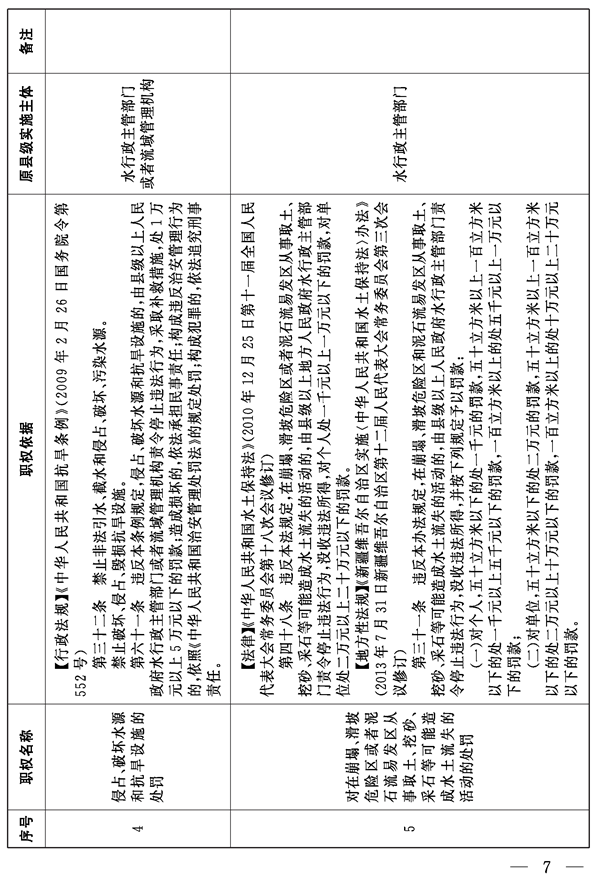 序号
职权名称
职权依据
原县级实施主体
备注
4
侵占、破坏水源
和抗旱设施的
处罚
【行政法规】《中华人民共和国抗旱条例》(2009 年 2 月 26 日国务院令第
552 号)
第三十二条 禁止非法引水、截水和侵占、破坏、污染水源。
禁止破坏、侵占、毁损抗旱设施。
第六十一条 违反本条例规定,侵占、破坏水源和抗旱设施的,由县级以上人民
政府水行政主管部门或者流域管理机构责令停止违法行为,采取补救措施,处 1 万
元以上 5 万元以下的罚款;造成损坏的,依法承担民事责任;构成违反治安管理行为
的,依照《中华人民共和国治安管理处罚法》的规定处罚;构成犯罪的,依法追究刑事
责任。
水行政主管部门
或者流域管理机构
5
对在崩塌、滑坡
危险区或者泥
石流易发区从
事取土、挖砂、
采石等可能造
成水土流失的
活动的处罚
【法律】《中华人民共和国水土保持法》(2010 年 12 月 25 日第十一届全国人民
代表大会常务委员会第十八次会议修订)
第四十八条 违反本法规定,在崩塌、滑坡危险区或者泥石流易发区从事取土、
挖砂、采石等可能造成水土流失的活动的,由县级以上地方人民政府水行政主管部
门责令停止违法行为,没收违法所得,对个人处一千元以上一万元以下的罚款,对单
位处二万元以上二十万元以下的罚款。
【地方性法规】《新疆维吾尔自治区实施〈中华人民共和国水土保持法〉办法》
(2013 年 7 月 31 日新疆维吾尔自治区第十二届人民代表大会常务委员会第三次会
议修订)
第三十一条 违反本办法规定,在崩塌、滑坡危险区和泥石流易发区从事取土、
挖砂、采石等可能造成水土流失的活动的,由县级以上人民政府水行政主管部门责
令停止违法行为,没收违法所得,并按下列规定予以罚款:
(一)对个人,五十立方米以下的处一千元的罚款,五十立方米以上一百立方米
以下的处一千元以上五千元以下的罚款,一百立方米以上的处五千元以上一万元以
下的罚款;
(二)对单位,五十立方米以下的处二万元的罚款,五十立方米以上一百立方米
以下的处二万元以上十万元以下的罚款,一百立方米以上的处十万元以上二十万元
以下的罚款。
水行政主管部门
— 7 —